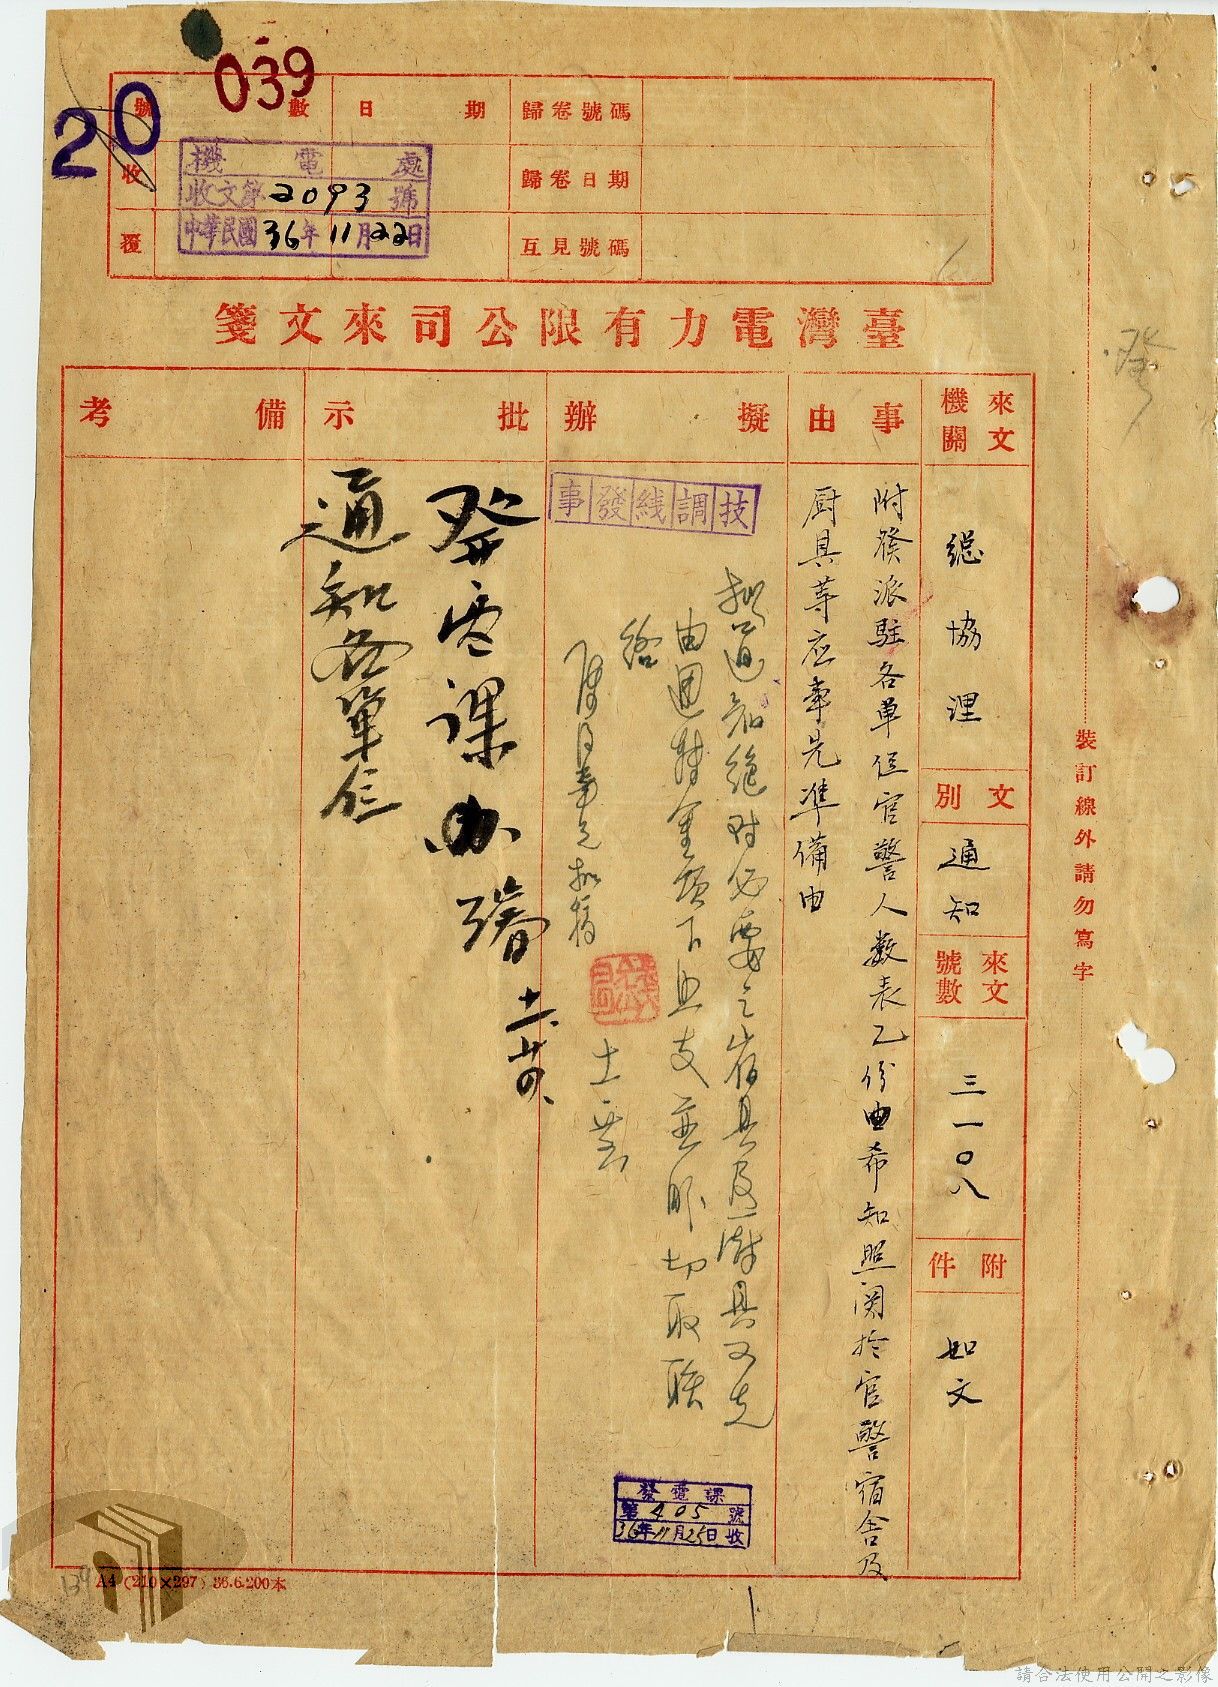 039
20
號數 日期 歸卷號碼
收 歸卷日期
覆 互見號碼
機電處
收文第2093號
中華民國36年11月22日
臺灣電力有限公司來文箋
來文機關
總協理
文別
通知
來文號數
三一〇八
附件
如文
事由
附發派駐各單位官警人數表乙份由希知照関於官警宿舍及
厨具等应事先準備由
擬辦
技調綫發事
擬通知絕對必要之
由週轉金項下
批示
發電課办
通知各單位
備考
發電課
第405號
36年11月25日收
裝訂線外請勿寫字
A4 (210×297) 36.6.200本
139
請合法使用公開之影像